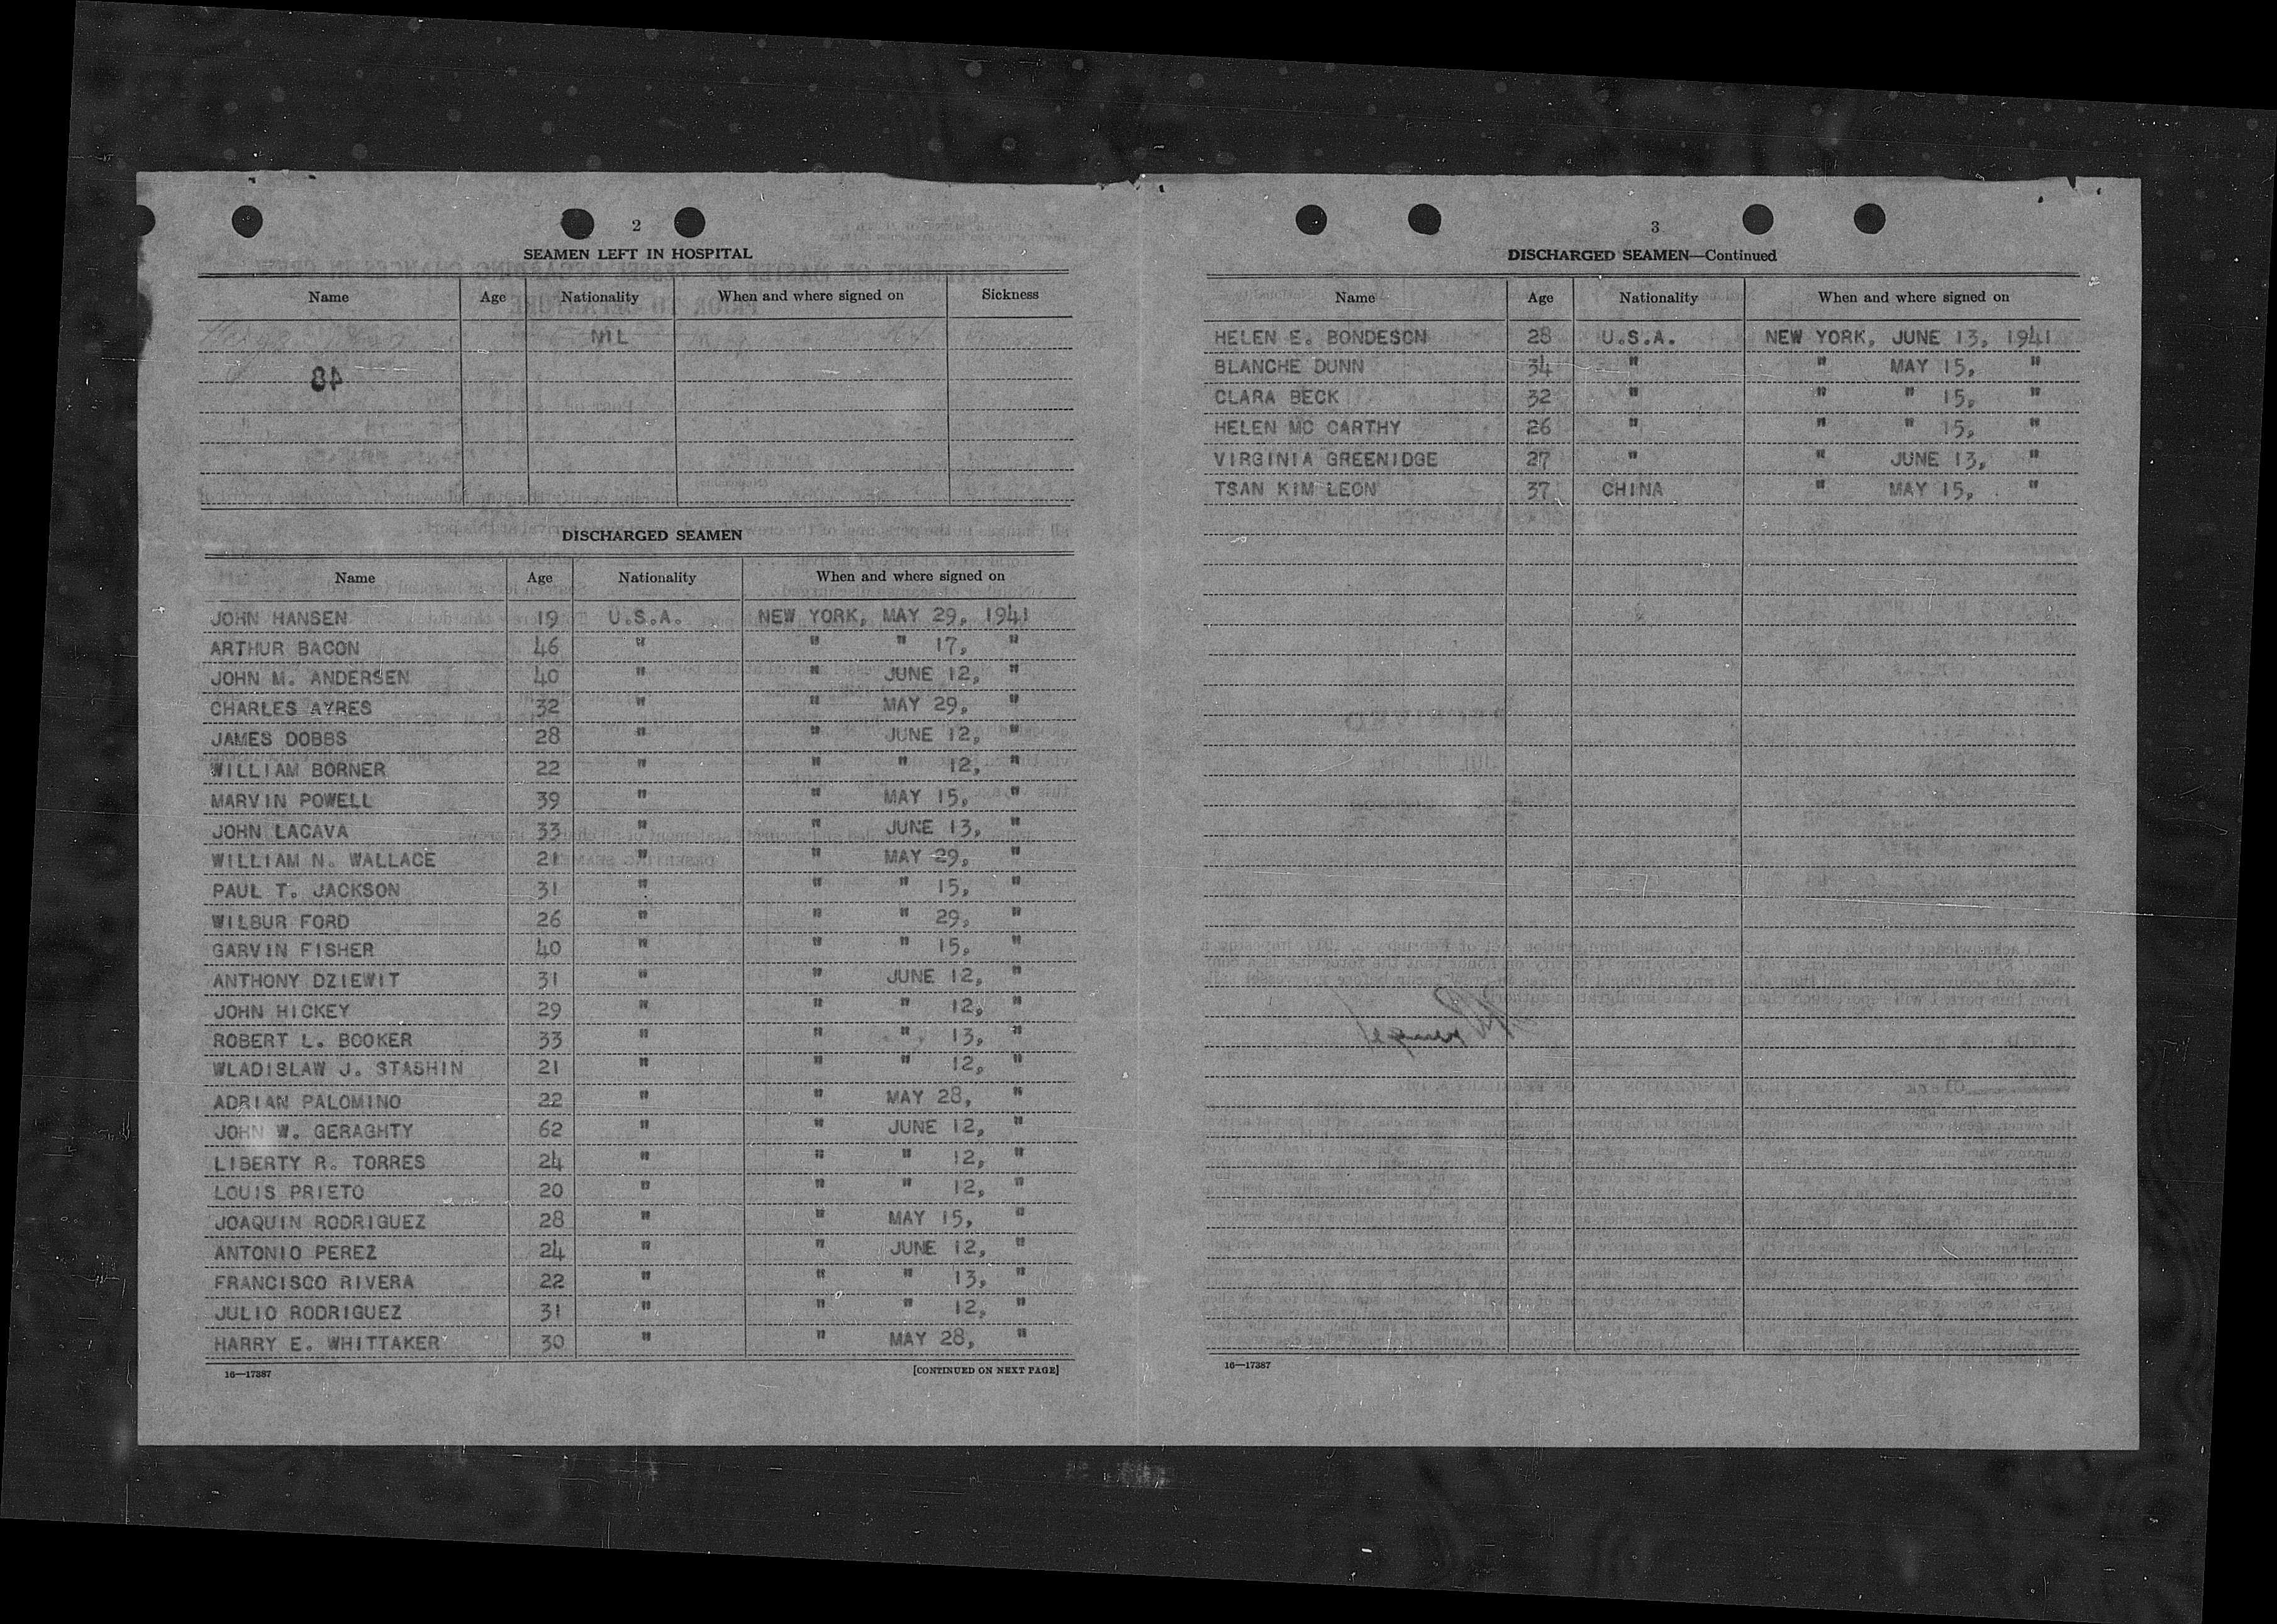 2
SEAMEN LEFT IN HOSPITAL
Name Age Nationality When and where signed on Sickness
NIL
48
DISCHARGED SEAMEN
Name Age Nationality When and where signed on
JOHN HANSEN 19 U.S.A. NEW YORK, MAY 29, 1941
ARTHUR BACON 46 " " " 17, "
JOHN M. ANDERSEN 40 " " JUNE 12, "
CHARLES AYRES 32 " " MAY 29, "
JAMES DOBBS 28 " " JUNE 12, "
WILLIAM BORNER 22 " " " 12, "
MARVIN POWELL 39 " " MAY 15, "
JOHN LACAVA 33 " " JUNE 13, "
WILLIAM N. WALLACE 21 " " MAY 29, "
PAUL T. JACKSON 31 " " " 15, "
WILBUR FORD 26 " " " 29, "
GARVIN FISHER 40 " " " 15, "
ANTHONY DZIEWIT 31 " " JUNE 12, "
JOHN HICKEY 29 " " " 12, "
ROBERT L. BOOKER 33 " " " 13, "
WLADISLAW J. STASHIN 21 " " " 12, "
ADRIAN PALOMINO 22 " " MAY 28, "
JOHN W. GERAGHTY 62 " " JUNE 12, "
LIBERTY R. TORRES 24 " " " 12, "
LOUIS PRIETO 20 " " " 12, "
JOAQUIN RODRIGUEZ 28 " " MAY 15, "
ANTONIO PEREZ 24 " " JUNE 12, "
FRANCISCO RIVERA 22 " " " 13, "
JULIO RODRIGUEZ 31 " " " 12, "
HARRY E. WHITTAKER 30 " " MAY 28, "
16—17387 [CONTINUED ON NEXT PAGE]
3
DISCHARGED SEAMEN—Continued
Name Age Nationality When and where signed on
HELEN E. BONDESON 28 U.S.A. NEW YORK, JUNE 13, 1941
BLANCHE DUNN 34 " " MAY 15, "
CLARA BECK 32 " " " 15, "
HELEN MC CARTHY 26 " " " 15, "
VIRGINIA GREENIDGE 27 " " JUNE 13, "
TSAN KIM LEON 37 CHINA " MAY 15, "
16—17387